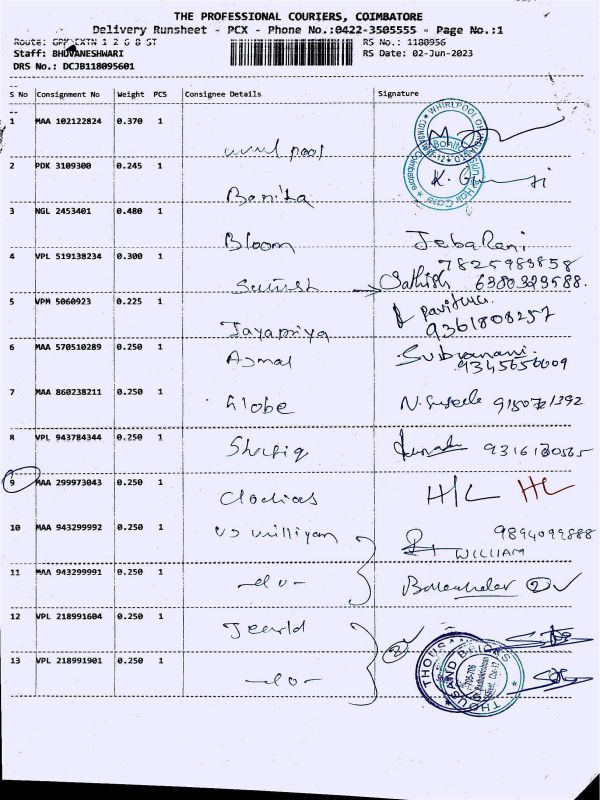 THE PROFESSIONAL COURIERS, COIMBATORE
Delivery Runsheet - PCX - Phone No.:0422-3505555 - Page No.:1
Route: EXTN 1 2 6 8 ST RS No.: 1180956
Staff: BHUVANESHWARI RS Date: 02-Jun-2023
DRS No.: DCJB118095601
S No Consignment No Weight PCS Consignee Details Signature
1 MAA 102122824 0.370 1 pool
2 PDK 3109300 0.245 1 Bonita
3 NGL 2453401 0.480 1 Bloom JebaRani
7825983858
4 VPL 519138234 0.300 1 Sathish 6380329588.
5 VPM 5060923 0.225 1 Jayapriya Pavithra
9361808257
6 MAA 570510289 0.250 1 Ajmal Subranani.
9345656009
7 MAA 860238211 0.250 1 Globe N. 9150721392
8 VPL 943784344 0.250 1 Shafiq
9 MAA 299973043 0.250 1 H/L HL
10 MAA 943299992 0.250 1 9894099888
WILLIAM
11 MAA 943299991 0.250 1 -do- 2
12 VPL 218991604 0.250 1 2
13 VPL 218991901 0.250 1 -do- THOUSAND BRICKS